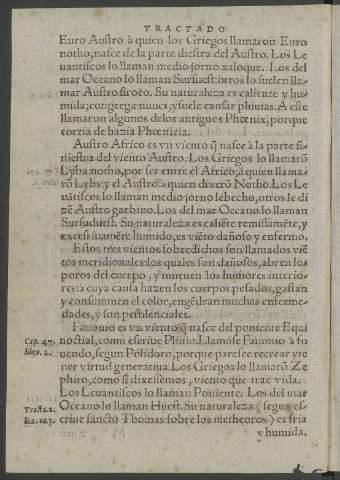 TRACTADO
Euro Austro à quien los Griegos llamaron Euro
notho, nasce de la parte diestra del Austro. Los Le
uantiscos lo llaman medio jorno xaloque. Los del
mar Oceano lo llaman Sursuest: otros lo suelen lla-
mar Austro siroto. Su naturaleza es caliente y hu-
mida; congrega nuues, y suele causar pluuias. A este
llamaron algunos de los antigues Phœnix, porque
corria de hazia Phœnicia.
Austro Africo es vn viento q̃ nasce à la parte si-
niestra del viento Austro. Los Griegos lo llamarõ
Lyba notho, por ser entre el Africo, à quien llama-
rõ Lybs: y el Austro à quien dixerõ Notho. Los Le
uãtiscos lo llaman medio jorno lebecho, otros le di
zẽ Austro garbino. Los del mar Oceano lo llaman
Sursuduest. Su naturaleza es caliẽte remissamẽte, y
excessiuamẽte humido, es viẽto dañoso y enfermo.
Estos tres vientos sobredichos son llamados viẽ
tos meridionales: los quales son dañosos, abren los
poros del cuerpo, y mueuen los humores interio-
res: a cuya causa hazen los cuerpos pesados, gastan
y consummen el color, engẽdran muchas enferme-
dades, y son pestilenciales.
Fauonio es vn viento q̃ nasce del poniente Equi
Cap. 47. noctial, como escriue Plinio. Llamose Fauonio à fo
libro. 2. uendo, segun Polidoro, porque paresce recrear y te
ner virtud generatiua. Los Griegos lo llamarõ Ze
phiro, como si dixessemos, viento que trae vida.
Los Leuantiscos lo llaman Poniente. Los del mar
Tracta. 2. Oceano lo llaman Huest. Su naturaleza (segun es-
li. 2. ca. 3. criue sancto Thomas sobre los metheoros) es fria
y humida.